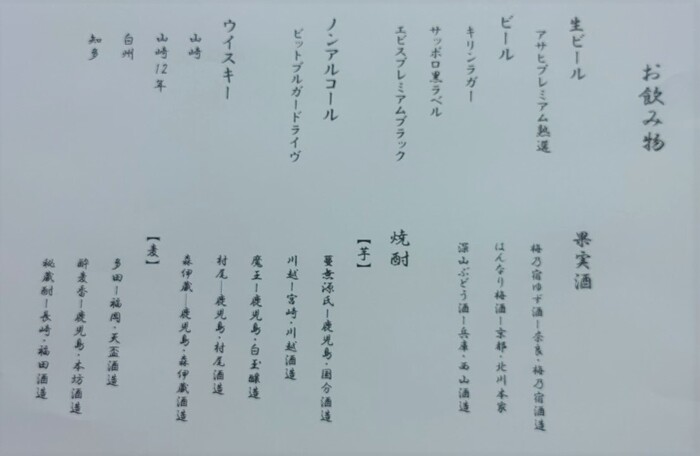 お飲み物
生ビール
アサヒプレミアム熟選
ビール
キリンラガー
サッポロ黒ラベル
エビスプレミアムブラック
ノンアルコール
ピットブルガードライヴ
ウイスキー
山崎
山崎12年
白州
知多
果実酒
梅乃宿ゆず酒ー奈良・梅乃宿酒造
はんなり梅酒ー京都・北川本家
深山ぶどう酒ー兵庫・西山酒造
焼酎
【芋】
蔓無源氏ー鹿児島・国分酒造
川越ー宮崎・川越酒造
魔王ー鹿児島・白玉醸造
村尾―鹿児島・村尾酒造
森伊蔵―鹿児島・森伊蔵酒造
【麦】
多田ー福岡・天盃酒造
酔麦香ー鹿児島・本坊酒造
秘蔵酎ー長崎・福田酒造